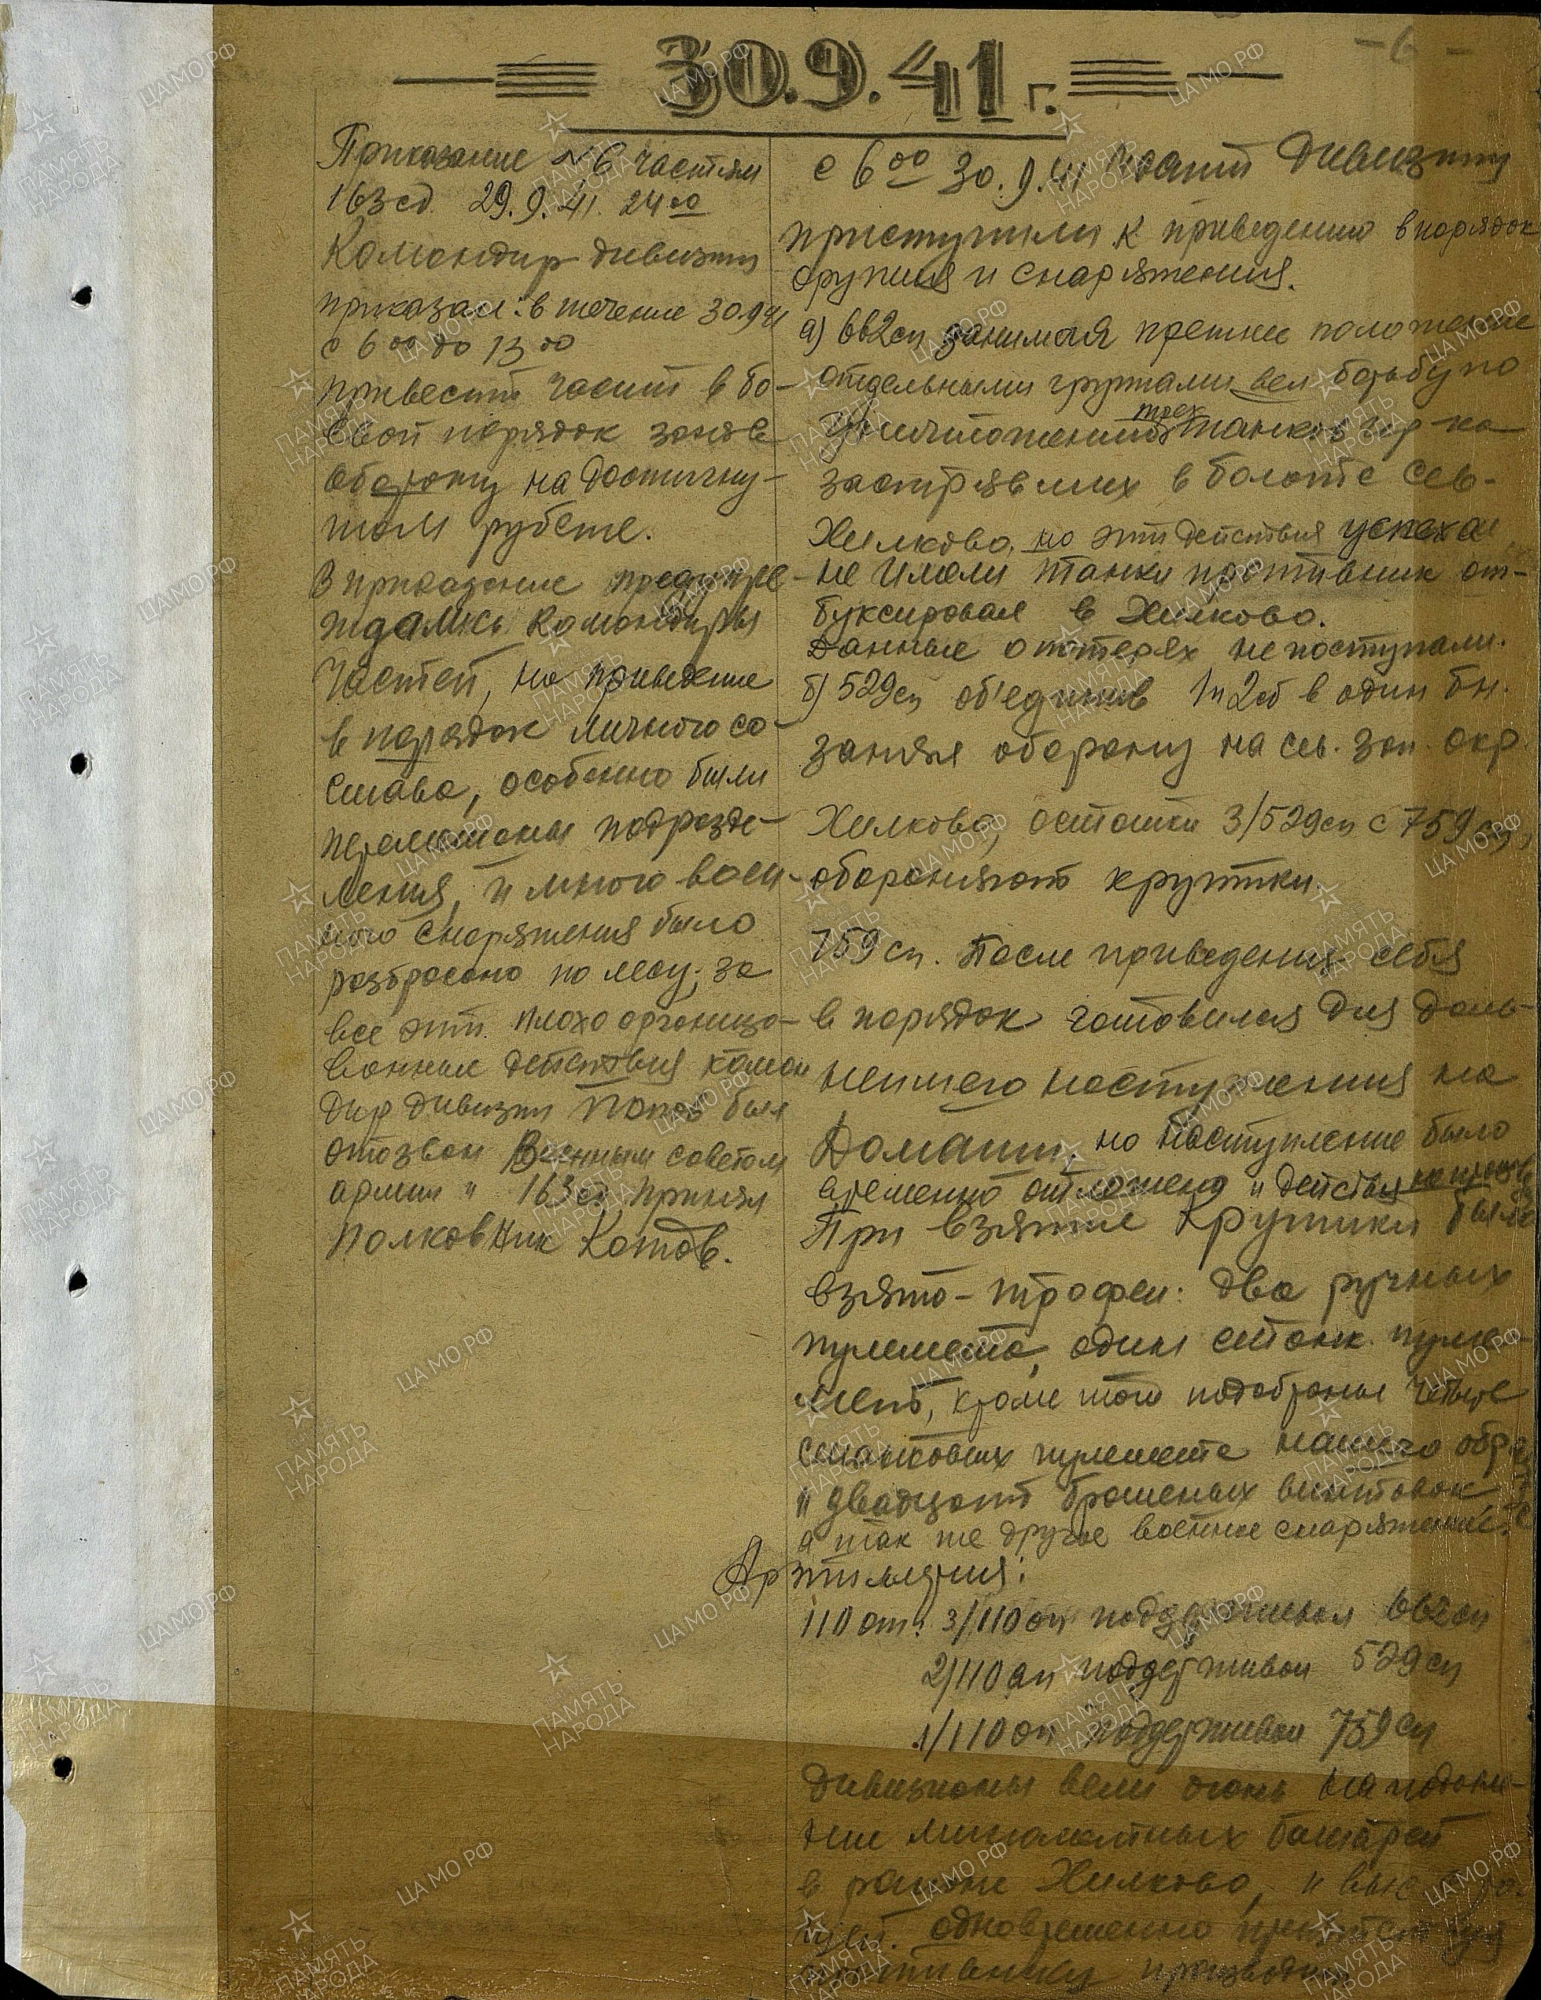 30.9.41 г.
Приказание №6 частям
163 сд. 29.9.41. 24 00
Командир дивизии
приказал: в течение 30.9.41
с 6 00 до 13 00
привести части в бо-
евой порядок заняв
оборону на достигну-
том рубеже.
В приказание предупре-
ждались командиры
частей, на приведение
в порядок личного со-
става, особенно были
перемешаны подразде-
ления, и много воен-
ного снаряжения было
разбросано по лесу; за
все эти плохо организо-
ванные действия коман
дир дивизии Попов был
отозван Военным советом
армии и 163 сд принял
полковник Котов.
с 6 00 30.9.41 части дивизии
приступили к приведению в порядок
оружия и снаряжения.
а) 662 сп занимая прежнее положение
отдельными группами вел борьбу по
уничтожению трех танков пр-ка
застрявших в болоте сев.
Хилково, но эти действия успеха
не имели танки противник от-
буксировал в Хилково.
Данные о потерях не поступали.
б) 529 сп об'единив 1 и 2 сб в один бн.
занял оборону на сев. зап. окр.
Хилково, остатки 3/529 сп с 759 сп,
обороняют Крутики.
759 сп. После приведения себя
в порядок готовился для даль-
нейшего наступления на
Домаши, но наступление было
временно отложено и действия
При взятие Крутики было
взято - трофеи: два ручных
пулемета, один станк. пуле-
мет, кроме того подобраны четыре
станковых пулемета нашего обр
и двадцать брошеных винтовок
а так же другое военное снаряжение.
Артиллерия:
110 ап: 3/110 ап поддерживал 662 сп
2/110 ап поддерживал 529 сп
1/110 ап поддерживал 759 сп
Дивизионы вели огонь на подавле-
ние минометных батарей
в районе Хилково, и
одновременно
противнику производить